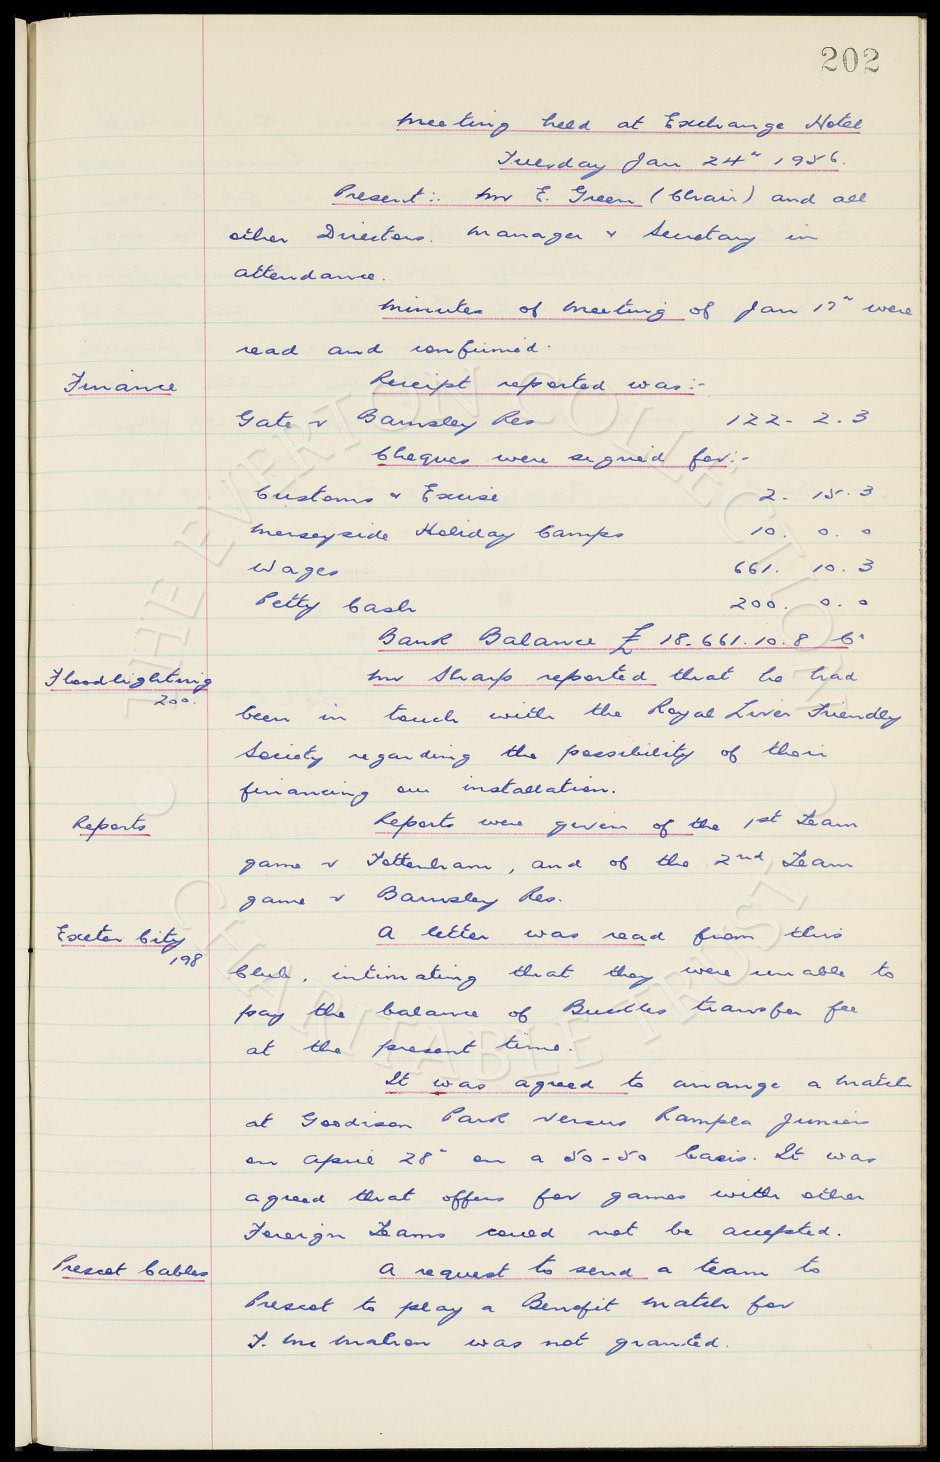 202
Meeting held at Exchange Hotel
Tuesday Jan 24" 1956.
Present:. Mr E. Green (Chair) and all
other Directors. Manager & Secretary in
attendance.
Minutes of Meeting of Jan 17" were
read and confirmed.
Finance Receipt reported was:-
Gate v Barnsley Res 122- 2. 3
Cheques were signed for:-
Customs & Excise 2. 15. 3
Merseyside Holiday Camps 10. 0. 0
Wages 661. 10. 3
Petty Cash 200. 0. 0
Bank Balance £18.661.10.8 Cr
Floodlighting Mr Sharp reported that he had
200.
been in touch with the Royal Liver Friendly
Society regarding the possibility of their
financing our installation.
Reports Reports were given of the 1st Team
game v Tottenham, and of the 2nd Team
game v Barnsley Res.
Exeter City A letter was read from this
198
Club, intimating that they were unable to
pay the balance of Buckles transfer fee
at the present time.
It was agreed to arrange a match
at Goodison Park versus Rampla Juniors
on April 28" on a 50-50 basis. It was
agreed that offers for games with other
Foreign Teams could not be accepted.
Prescot Cables A request to send a team to
Prescot to play a Benefit Match for
T. McMahon was not granted.
THE EVERTON COLLECTION
CHARITABLE TRUST